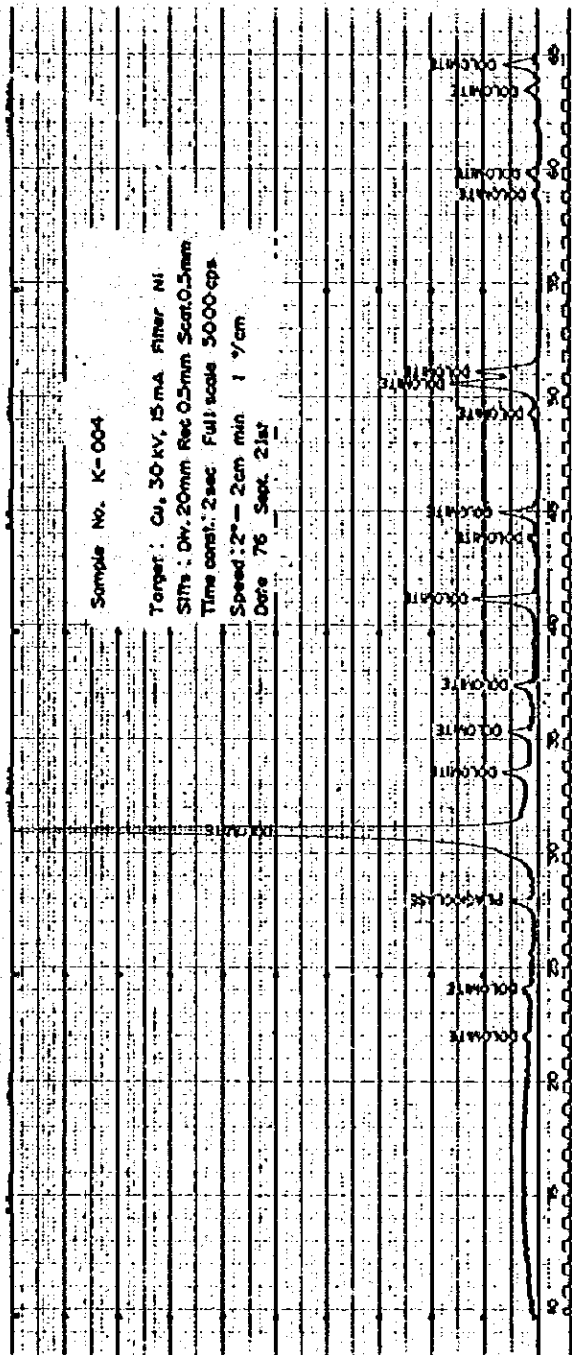 Sample No. K-004
Target : Cu, 30 kV, 15 mA Filter Ni
Slits : Div. 20mm Rec 0.5mm Scat. 0.5mm
Time const.: 2 sec. Full scale 5000 cps
Speed : 2° — 2cm min. 1 °/cm
Date 76 Sept. 21st
DOLOMITE
DOLOMITE
PLAGIOCLASE
DOLOMITE
DOLOMITE
DOLOMITE
DOLOMITE
DOLOMITE
DOLOMITE
DOLOMITE
DOLOMITE
DOLOMITE
DOLOMITE
DOLOMITE
DOLOMITE
DOLOMITE
DOLOMITE
10 15 20 25 30 35 40 45 50 55 60 65